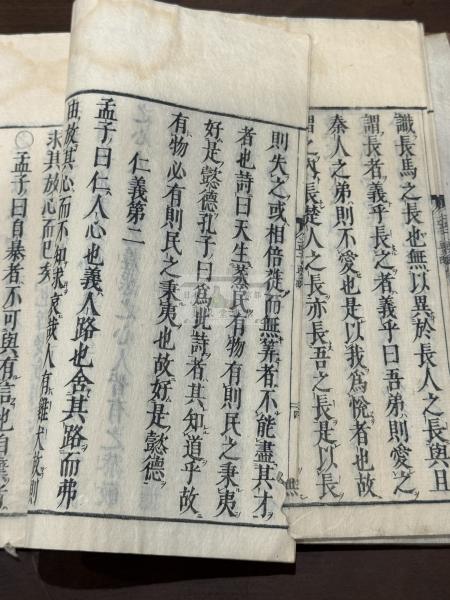 識長馬之長也無以異於長人之長與且
謂長者義乎長之者義乎曰吾弟則愛之
秦人之弟則不愛也是以我爲悅者也故
謂之内長楚人之長亦長吾之長是以長
則失之或相倍蓰而無筭者不能盡其才
者也詩曰天生蒸民有物有則民之秉夷
好是懿德孔子曰爲此詩者其知道乎故
有物必有則民之秉夷也故好是懿德
仁義第二
孟子曰仁人心也義人路也舍其路而弗
由放其心而不知求哀哉人有雞犬放則
求其放心而已矣
孟子曰自暴者不可與有言也自棄